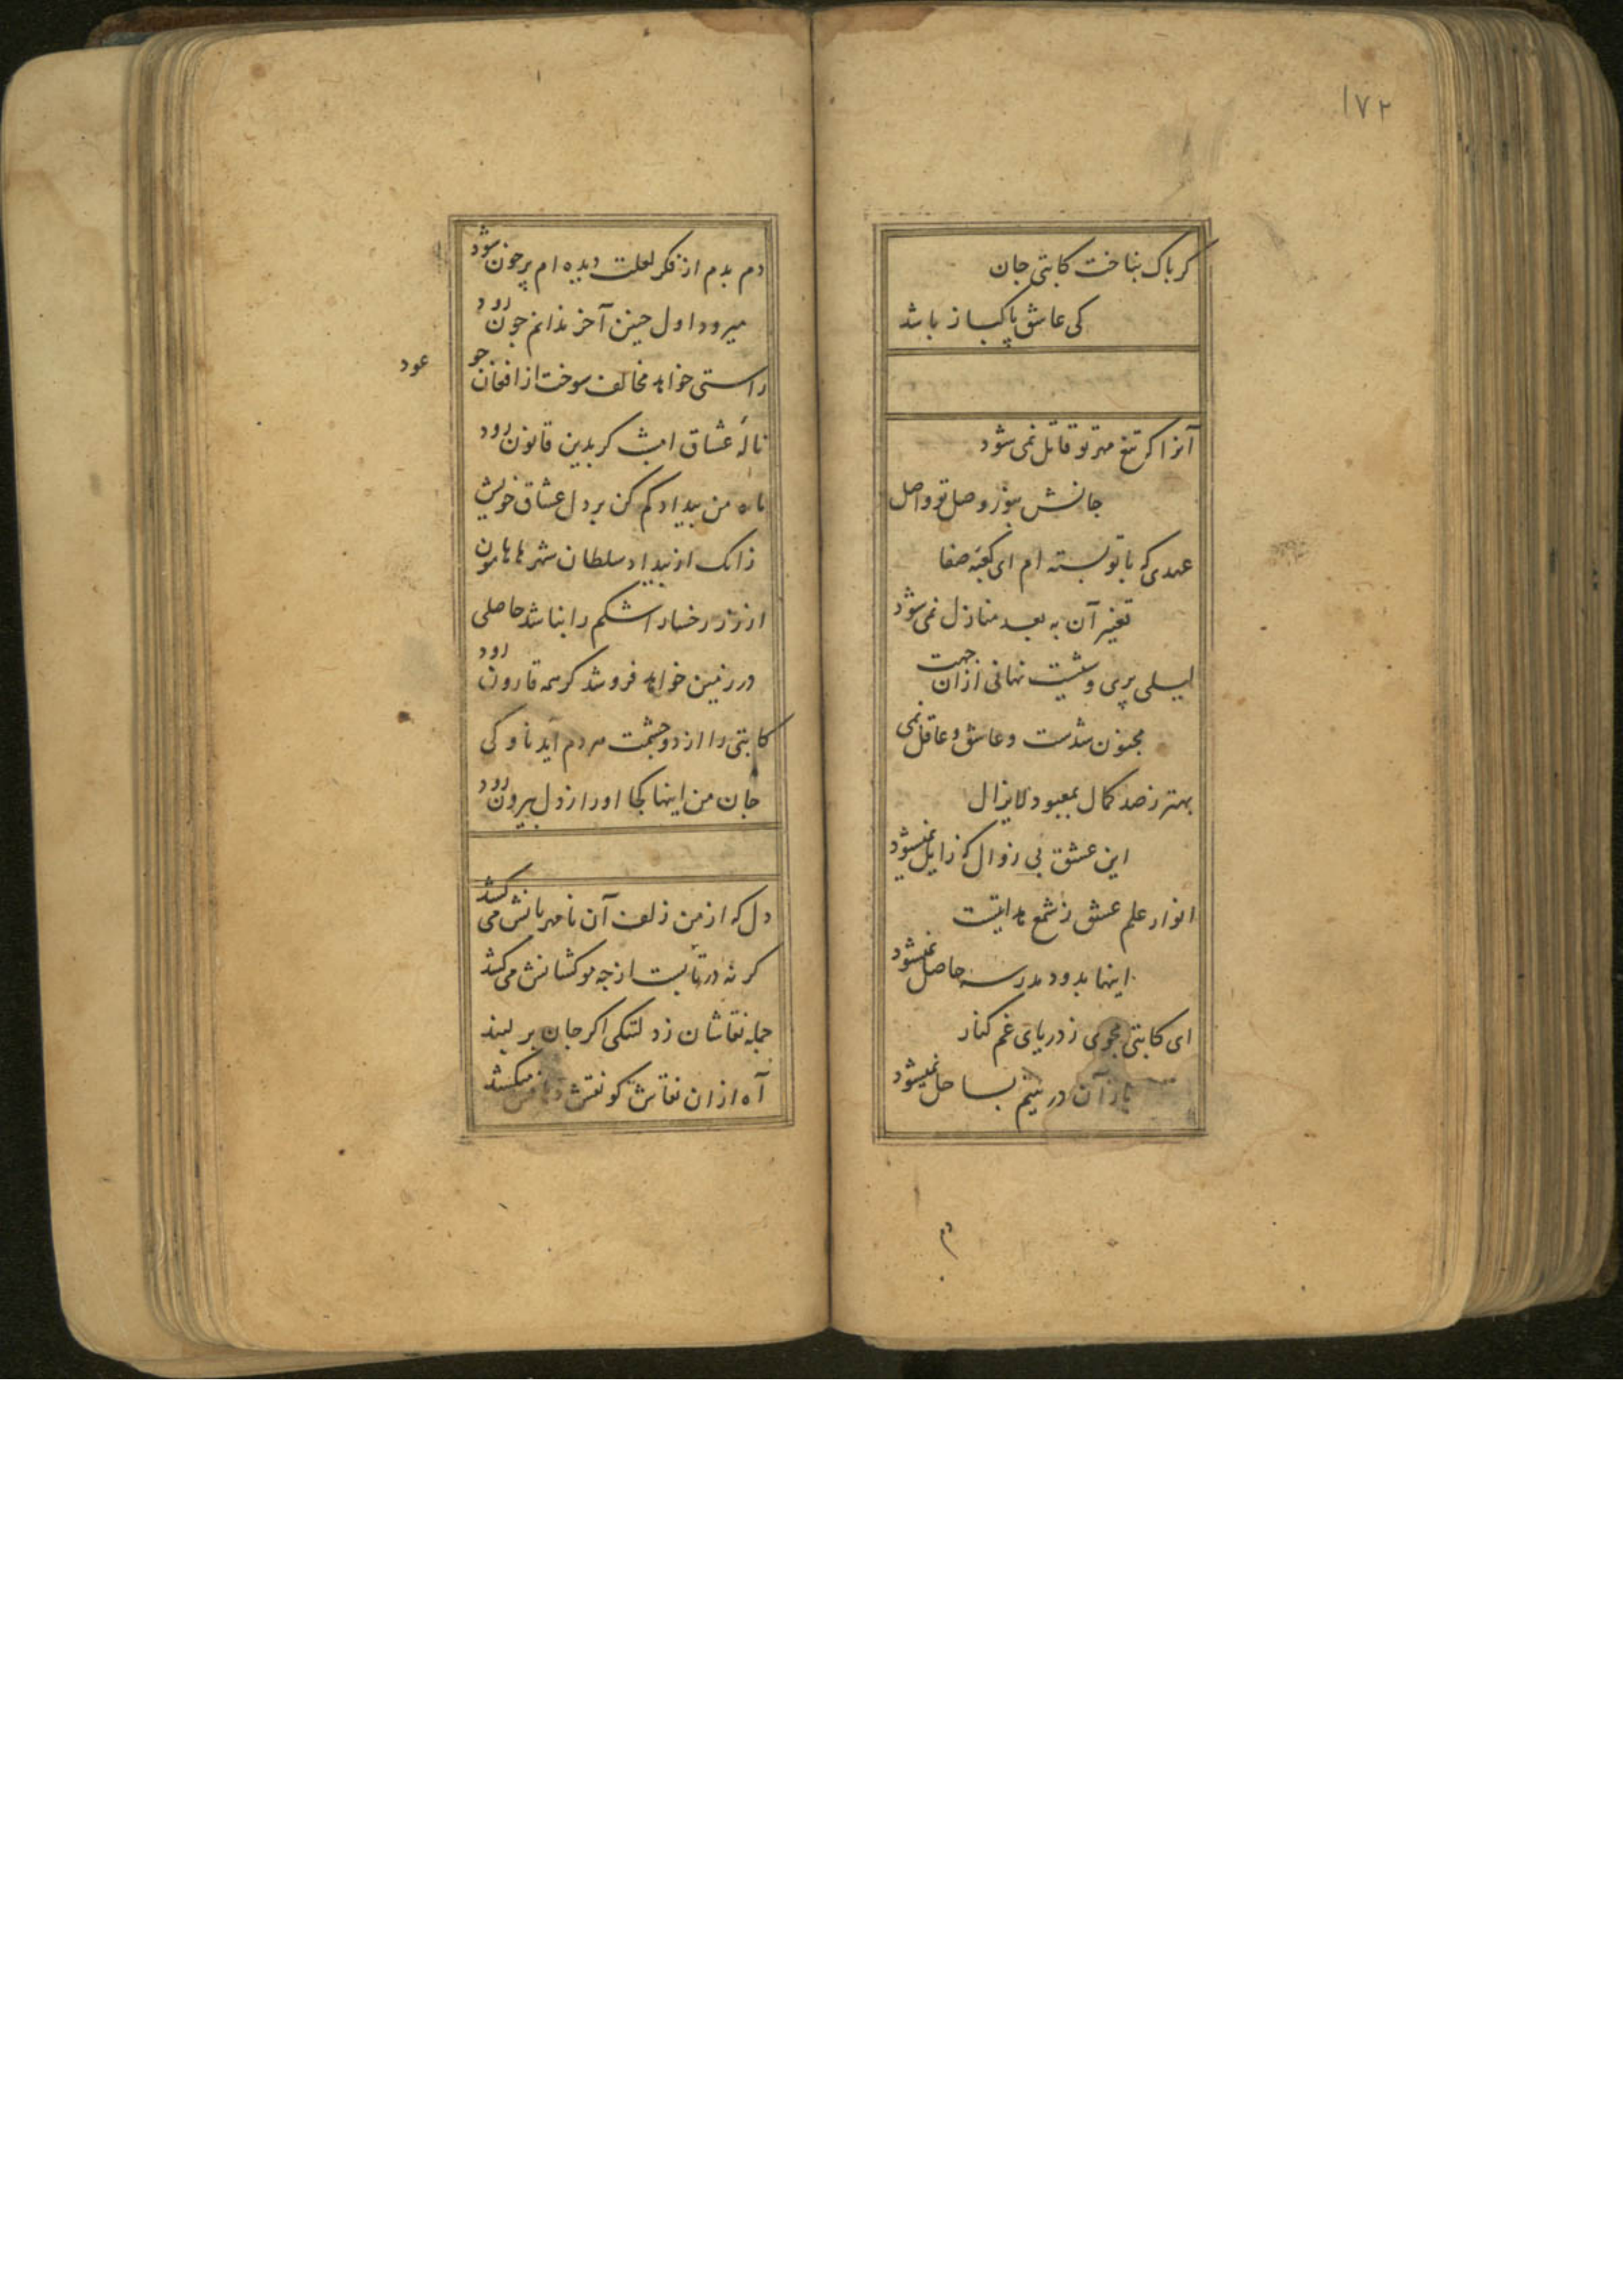 ۱۷۲
کر باک بناخت کاتبی جان
کی عاشق پاکباز باشد
آنرا که تیغ مهر تو قاتل نمی شود
جانش بنوز وصل تو واصل
عهدی که با تو بسته ام ای کعبه صفا
تغییر آن به بعد منازل نمی شود
لیلی پری وشیست نهانی ازان جهت
مجنون شدست و عاشق و عاقل نمی
بهتر ز صد کمال بمعبود لایزال
این عشق بی زوال که زایل نمیشود
انوار علم عشق ز شمع هدایتست
اینها بدود مدرسه حاصل نمیشود
ای کاتبی مجوی ز دریای غم کنار
باز آن در یتیم بساحل نمیشود
دم
دم بدم از فکر لعلت دیده ام پر خون شود
میرود اول چنین آخر ندانم چون رود
راستی خواهد مخالف سوخت از افغان چو
عود
نالهٔ عشاق امشب کر بدین قانون رود
ماه من بیداد کم کن بر دل عشاق خویش
زانک از بیداد سلطان شهرها هامون
از زر رخسار اشکم را نباشد حاصلی
در زمین خواهد فرو شد کر همه قارون رود
کاتبی را از دو چشمت مردم آید ناوکی
جان من اینها کجا او را از دل بیرون رود
دل که از من زلف آن نامهربانش می کشد
کر نه در تابست از چه مو کشانش می کشد
جمله نقاشان ز دلتنکی اکر جان بر لبند
آه ازان نقاش کو نقش دهانش میکشد